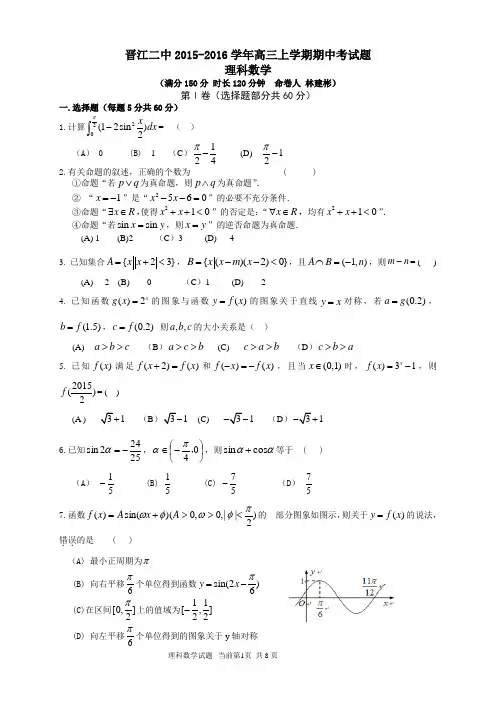 晋江二中 2015-2016 学年高三上学期期中考试题
理科数学
（满分150分 时长120分钟 命卷人 林建彬）
第Ⅰ卷（选择题部分共60分）
一.选择题（每题5分共60分）
1.计算∫₀^(π/2)(1-2sin²(x/2))dx= （ ）
（A） 0 （B） 1 （C） π/2-1/4 (D) π/2-1
2.有关命题的叙述，正确的个数为 ( )
①命题“若p∨q为真命题，则p∧q为真命题”.
② “x=-1”是“x²-5x-6=0”的必要不充分条件.
③命题“∃x∈R,使得x²+x+1<0”的否定是：“∀x∈R，均有x²+x+1<0 ”.
④命题“若sin x=sin y，则x=y”的逆否命题为真命题.
(A) 1 (B)2 （C）3 (D) 4
3. 已知集合A={x|x+2|<3}，B={x|(x-m)(x-2)<0}，且A∩B=(-1,n)，则m-n=( )
(A) 2 (B) 0 （C）1 (D) 2
4. 已知函数g(x)=2ˣ的图象与函数y=f(x)的图象关于直线y=x对称，若a=g(0.2)，
b=f(1.5)，c=f(0.2) 则a,b,c的大小关系是（ ）
(A) a>b>c （B）a>c>b (C) c>a>b （D）c>b>a
5. 已知f(x)满足f(x+2)=f(x)和f(-x)=-f(x)，且当x∈(0,1)时，f(x)=3ˣ-1，则
f(2015/2)=( )
(A ) √3+1 （B）√3-1 (C) -√3-1 （D）-√3+1
6.已知sin2α=-24/25，α∈(-π/4,0)，则sinα+cosα等于 ( )
（A） -1/5 (B) 1/5 (C) -7/5 （D） 7/5
7.函数f(x)=Asin(ωx+ϕ)(A>0,ω>0,|ϕ|<π/2)的 部分图象如图示，则关于y=f(x)的说法，
错误的是 ( )
(A) 最小正周期为π
(B) 向右平移π/6个单位得到函数y=sin(2x-π/6)
(C)在区间[0,π/2]上的值域为[-1/2,1/2]
(D) 向左平移π/6个单位得到的图象关于y轴对称
y
1
O
π/6
11π/12
x
理科数学试题 当前第1页 共8页